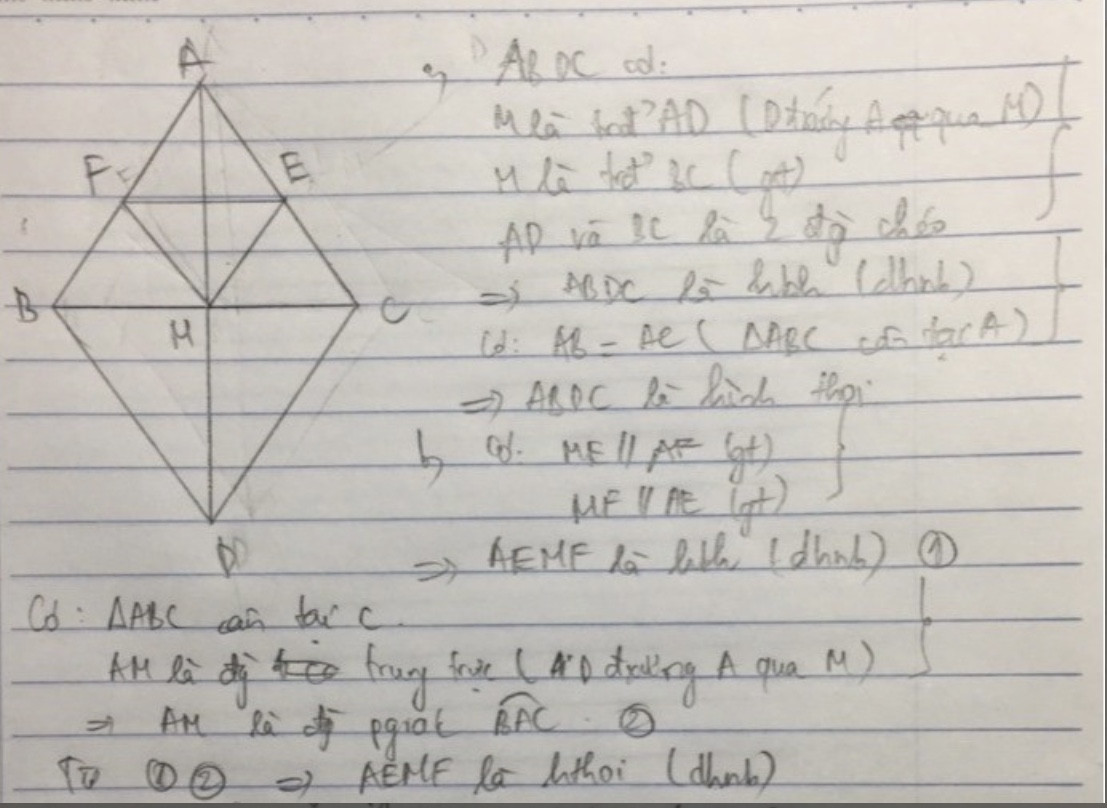 A
F
E
B
C
M
D
a, ABDC có:
M là trđ' AD (D đxứng A qua M)
M là trđ' BC (gt)
AD và BC là 2 đg chéo
=> ABDC là hbh (dhnb)
Có: AB = AC (ΔABC cân tại A)
=> ABDC là hình thoi
b, Có: ME // AF (gt)
MF // AE (gt)
=> AEMF là hbh (dhnb) ①
Có: ΔABC cân tại C.
AM là đg trung trực (A'D đxứng A qua M)
=> AM là đg pgiác BAC. ②
Từ ① ② => AEMF là hthoi (dhnb)